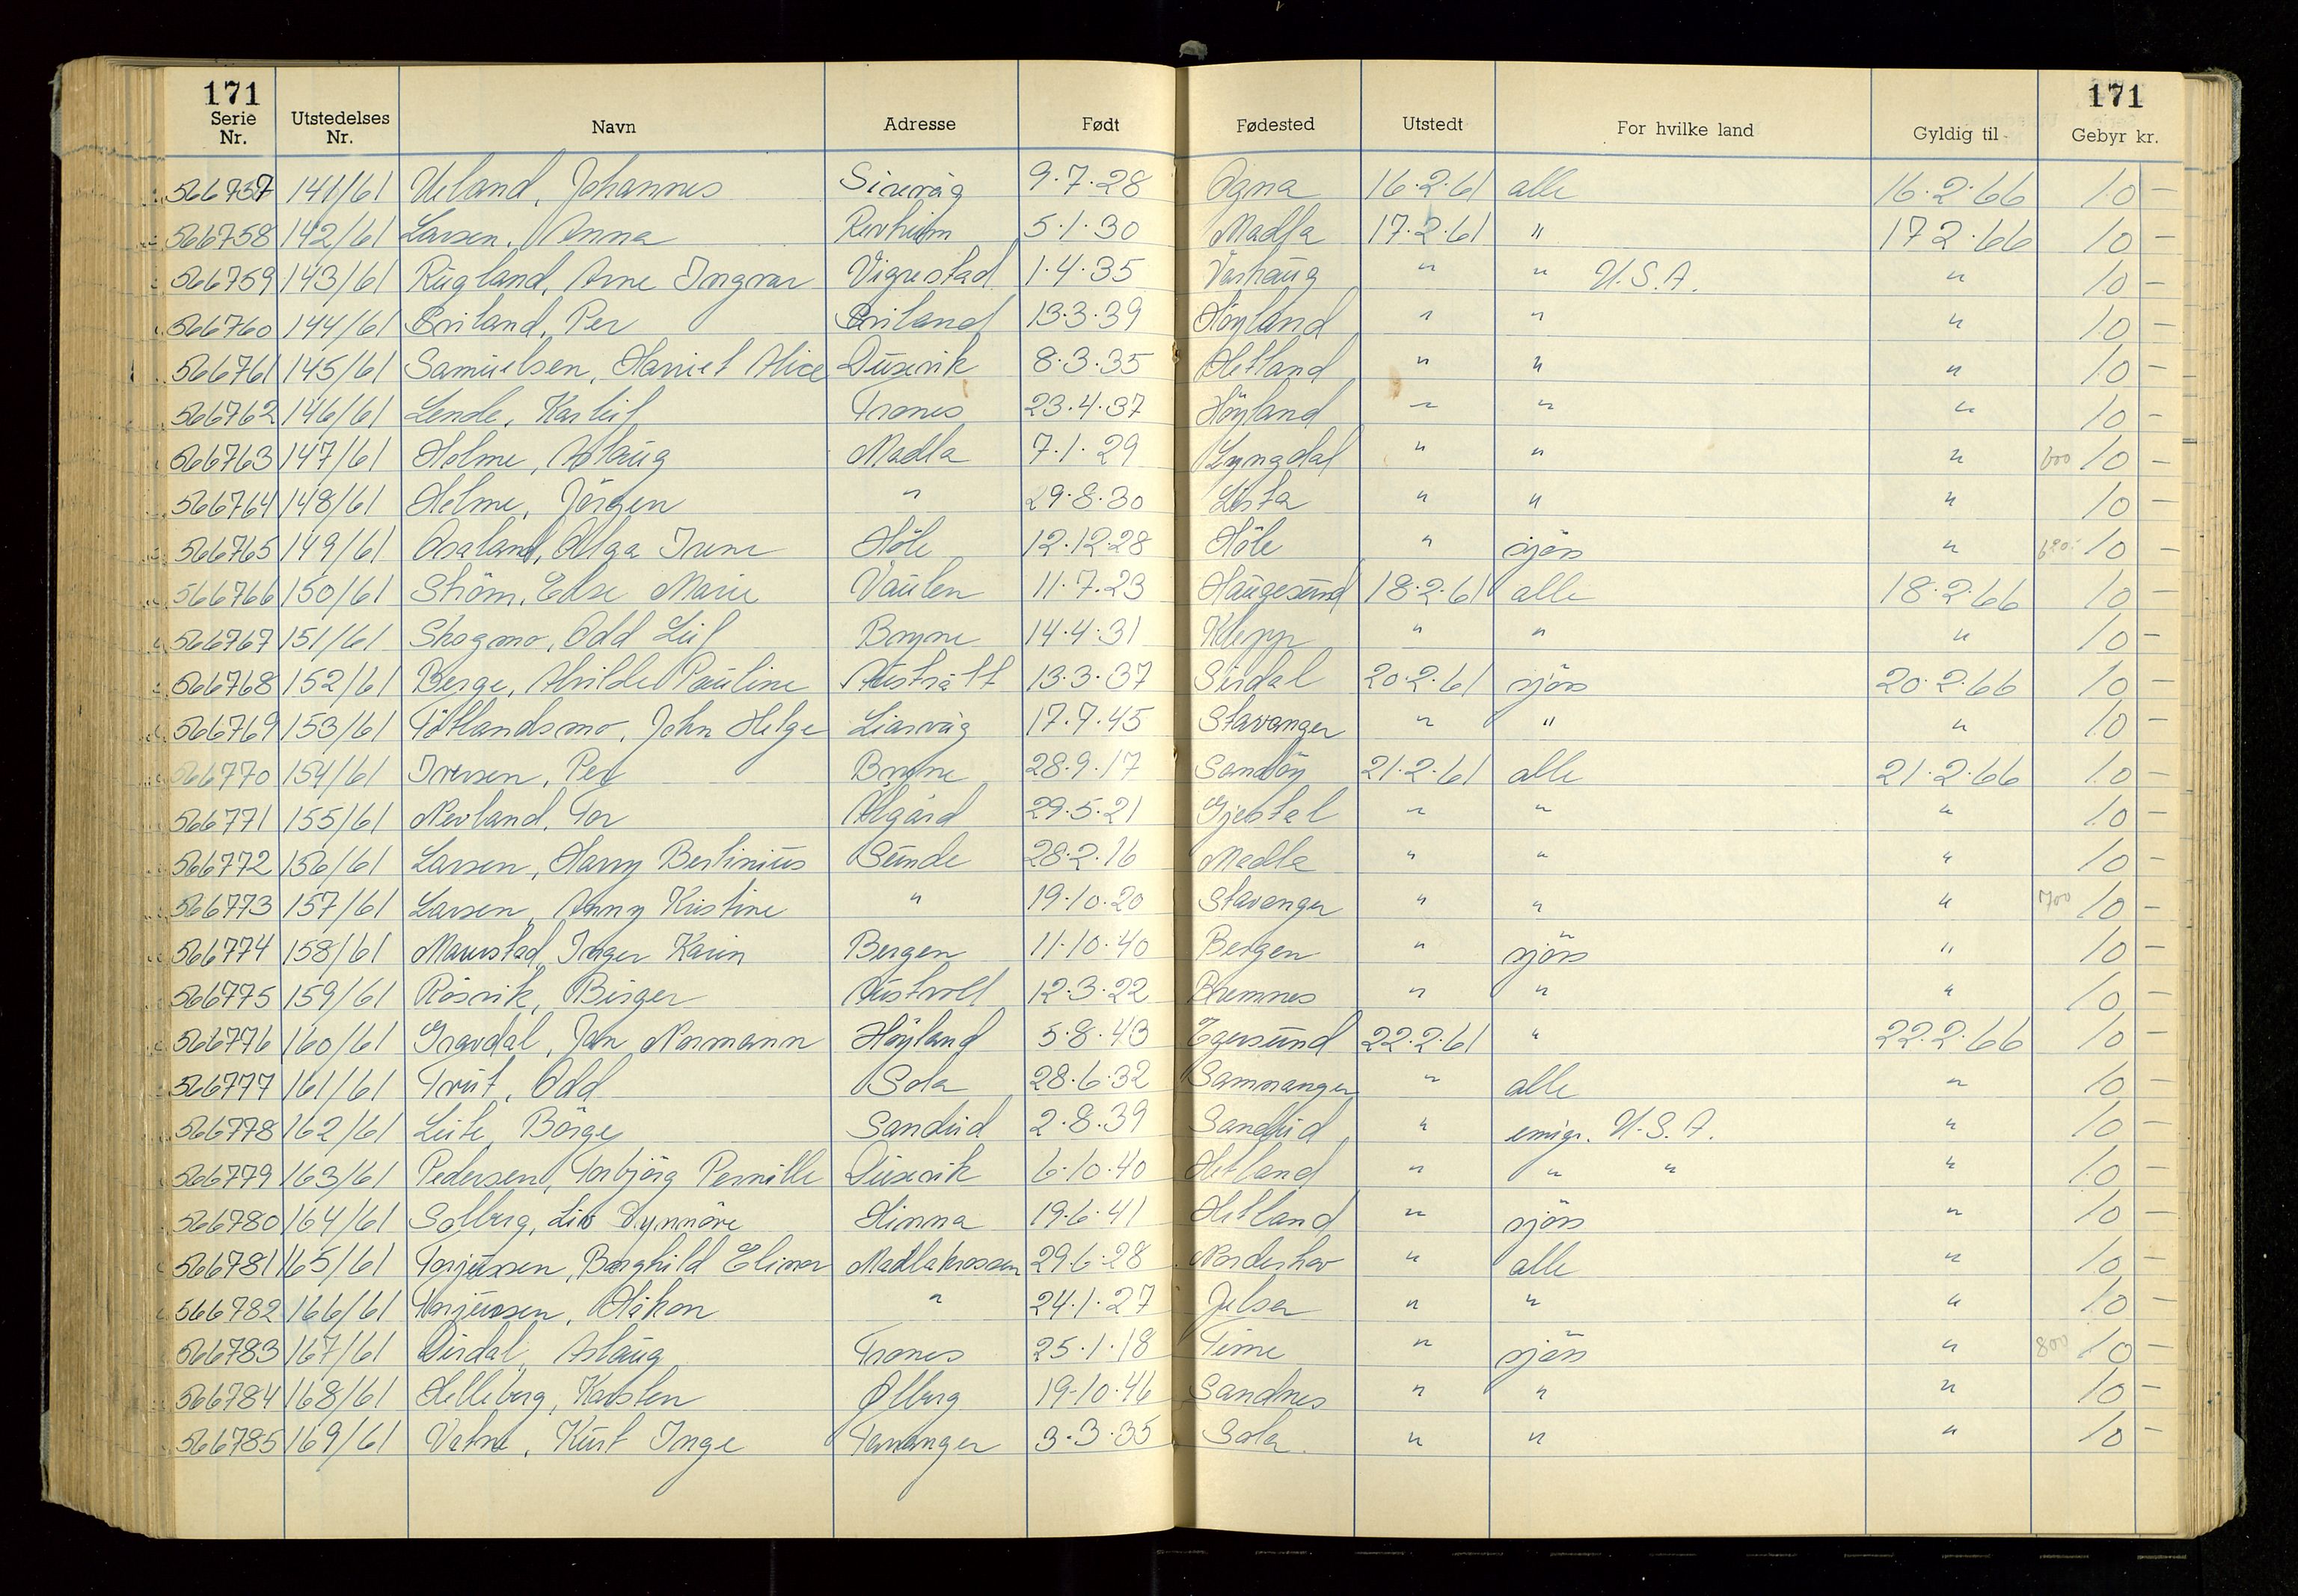 171 171
Serie Nr. Utstedelses Nr. Navn Adresse Født Fødested Utstedt For hvilke land Gyldig til Gebyr kr.
566757 141/61 Ueland, Johannes Sirevåg 9.7.28 Ogna 16.2.61 alle 16.2.66 10 –
566758 142/61 Larsen, Anna Revheim 5.1.30 Madla 17.2.61 " 17 2.66 10 –
566759 143/61 Rugland, Arne Ingmar Vigrestad 1.4.35 Varhaug " " U.S.A. " 10 –
566760 144/61 Per 13.3.39 Høyland " " " 10 –
566761 145/61 Samuelsen, Harriet Alice Dusevik 8.3.35 Hetland " " " 10 –
566762 146/61 Lende, Karleif Trones 23.4.37 Høyland " " " 10 –
566763 147/61 Helme, Aslaug Madla 7.1.29 Lyngdal " " " 600 10 –
566764 148/61 Helme, Jörgen " 29.8.30 Lista " " " 10 –
566765 149/61 Osaland, Olga Irene Höle 12.12.28 Höle " sjøs " 10 –
566766 150/61 Ström, Else Marie Vaulen 11.7.23 Haugesund 18.2.61 alle 18.2.66 10 –
566767 151/61 Skogmo, Odd Leif Bryne 14.4.31 Klepp " " " 10 –
566768 152/61 Berge, Alvilde Pauline Austrått 13.3.37 Sirdal 20.2.61 sjøs 20.2.66 10 –
566769 153/61 Tötlandsmo, John Helge Liarvåg 17.7.45 Stavanger " " " 10 –
566770 154/61 Iversen, Per Bryne 28.9.17 Sandöy 21.2.61 alle 21.2.66 10 –
566771 155/61 Nevland, Tor Ålgård 29.5.21 Gjestal " " " 10 –
566772 156/61 Larsen, Harry Bertinius Sunde 28.2.16 Madla " " " 10 –
566773 157/61 Larsen, Anny Kristine " 19.10.20 Stavanger " " " 700 10 –
566774 158/61 Maurstad, Inger Karin Bergen 11.10.40 Bergen " sjøs " 10 –
566775 159/61 Røsvik, Birger Austvoll 12.3.22 Bremnes " " " 10 –
566776 160/61 Gravdal, Jan Normann Höyland 5.8.43 Egersund 22.2.61 " 22.2.66 10 –
566777 161/61 Odd Sola 28.6.32 Samnanger " alle " 10 –
566778 162/61 Leite, Börge Sandeid 2.8.39 Sandeid " emigr. U.S.A. " 10 –
566779 163/61 Pedersen, Torbjörg Pernille Dusevik 6.10.40 Hetland " " " " 10 –
566780 164/61 Solberg, Liv Synnöve Hinna 19.6.41 Hetland " sjøs " 10 –
566781 165/61 Torjussen, Borghild Elinor Madlakrossen 29.6.28 Norderhov " alle " 10 –
566782 166/61 Torjussen, Håkon " 24.1.27 Jelsa " " " 10 –
566783 167/61 Dirdal, Aslaug Trones 25.1.18 Time " sjøs " 800 10 –
566784 168/61 Helleberg, Karsten Ølberg 19.10.46 Sandnes " " " 10 –
566785 169/61 Vatne, Kurt Inge Tananger 3.3.35 Sola " " " 10 –